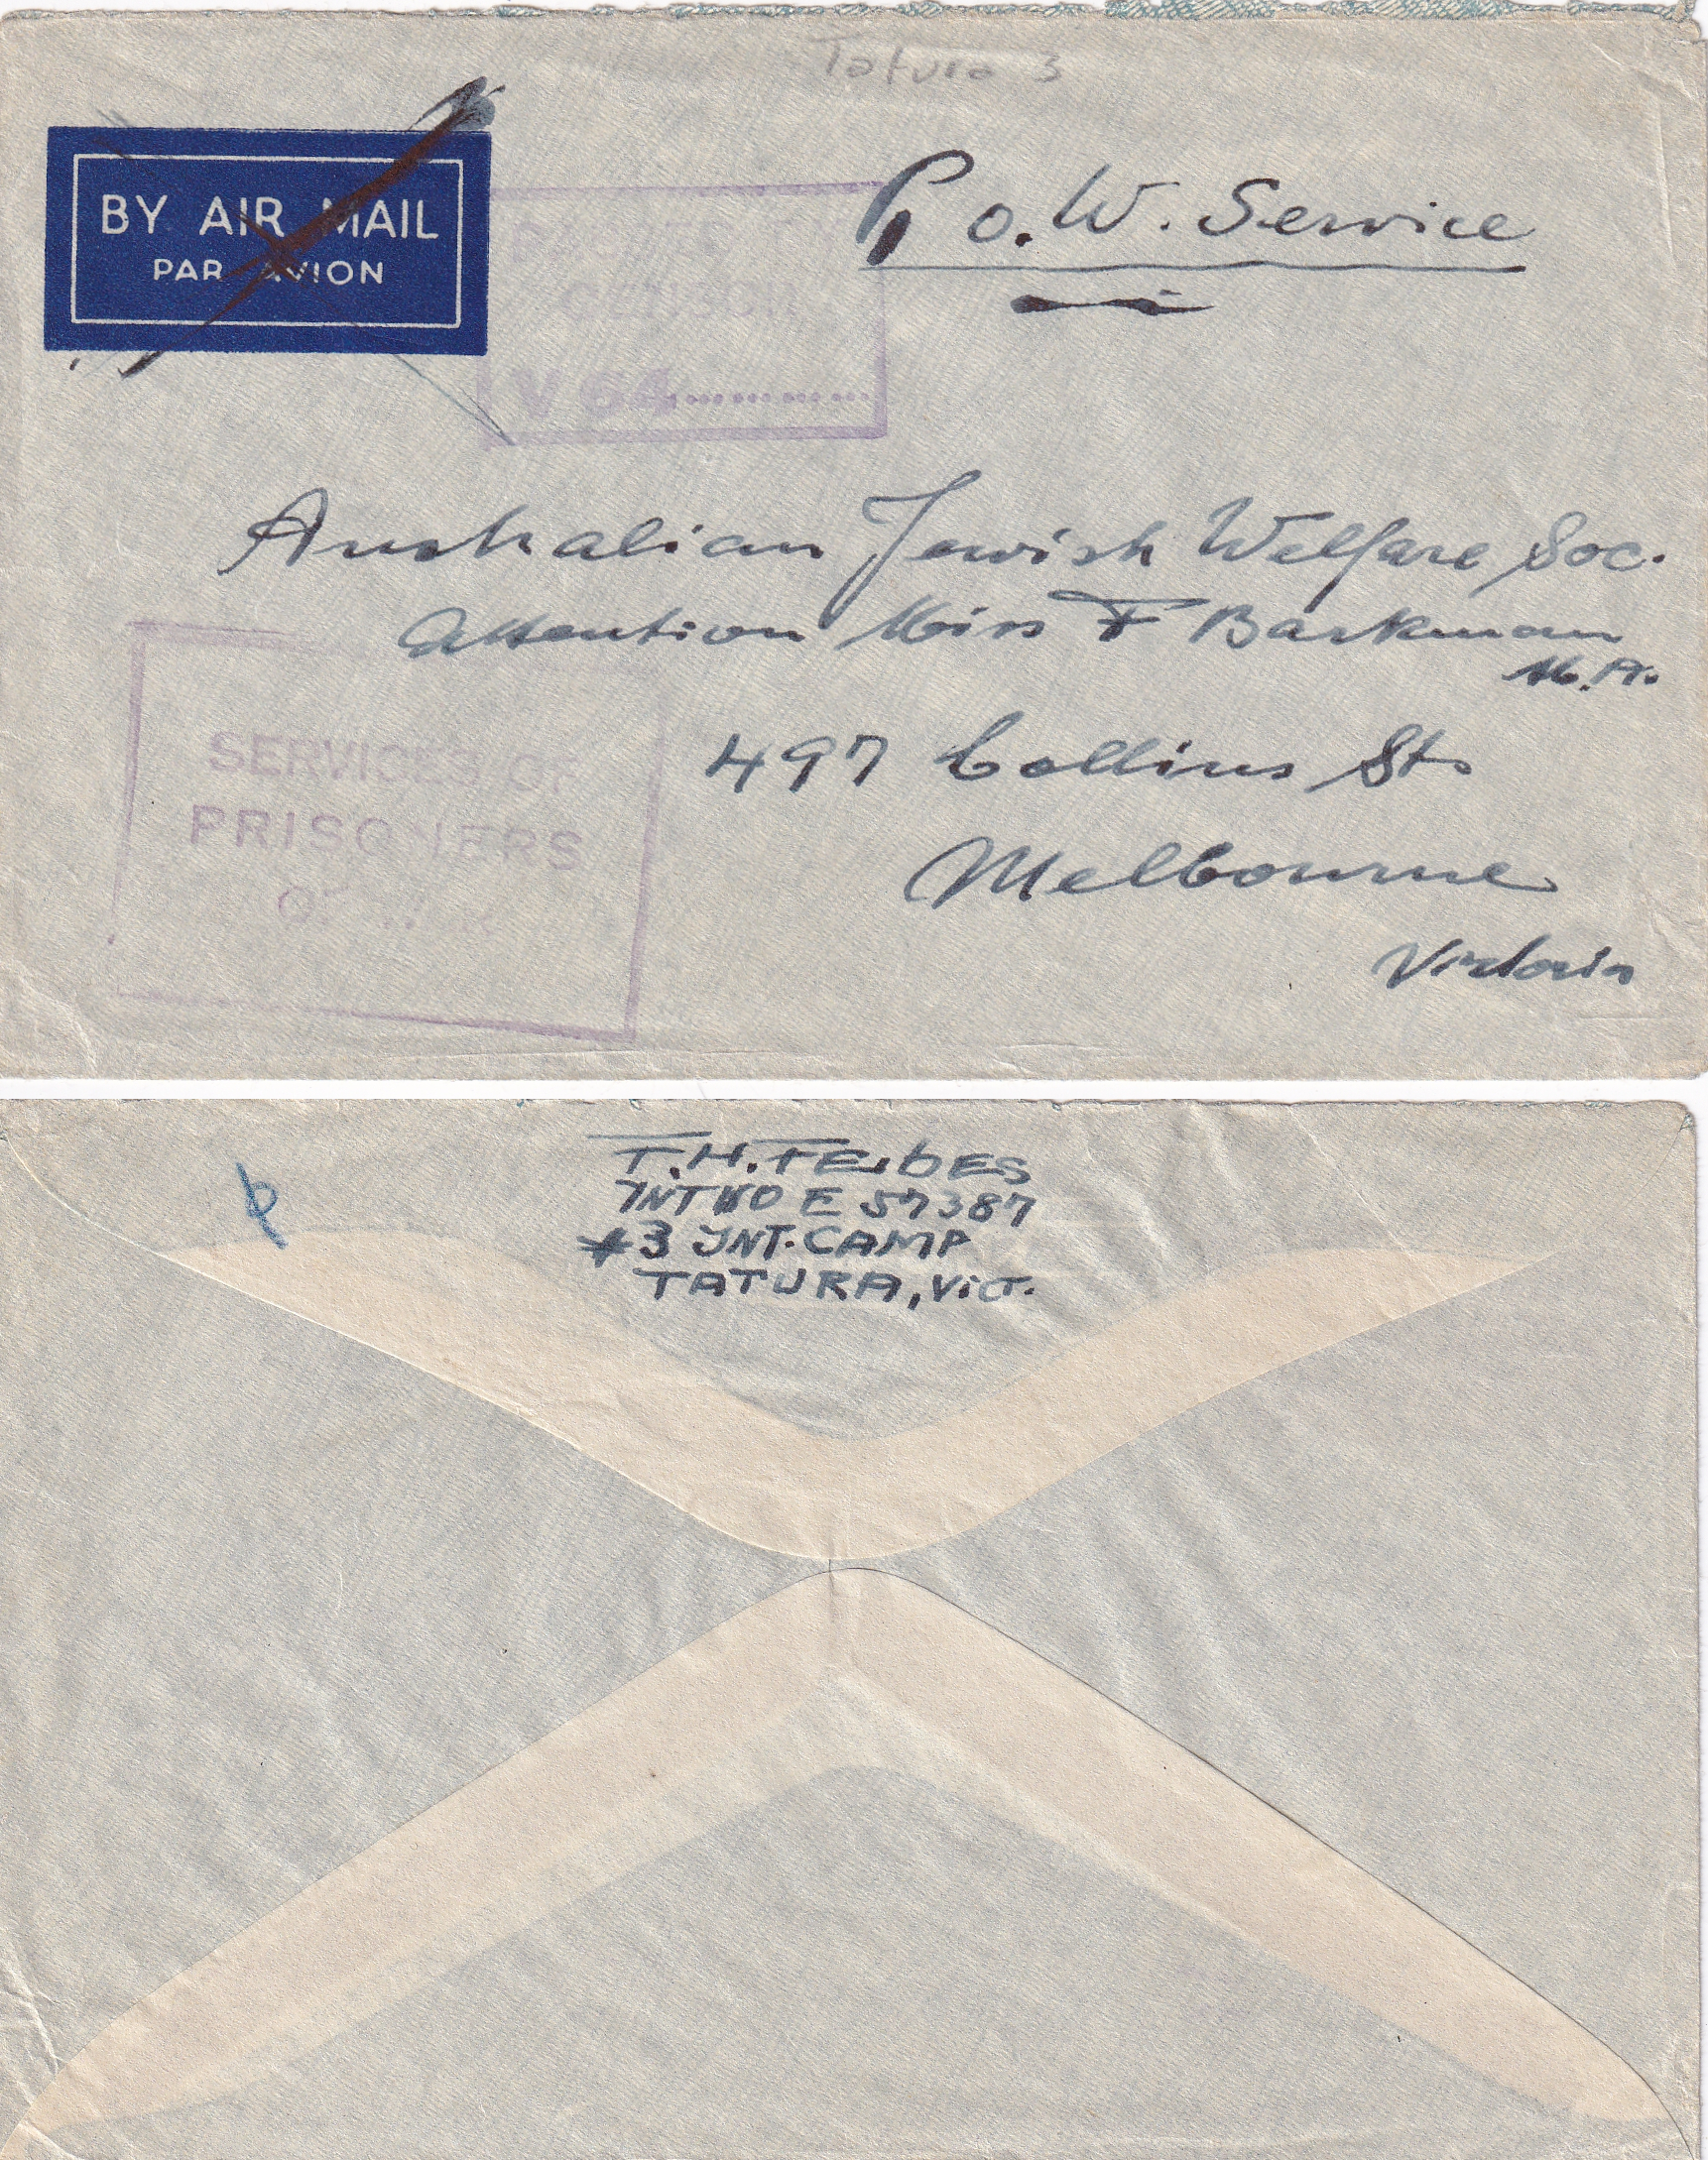 Tatura 3
BY AIR MAIL
PAR AVION
P.o.W. Service
PASSED BY
CENSOR
V 64
Australian Jewish Welfare Soc.
Attention Miss F Barkman
M.A.
497 Collins St.
Melbourne
Victoria
SERVICES OF
PRISONERS
OF WAR
T.H. FEIBES
INT NO E 57387
#3 INT. CAMP
TATURA, Vict.